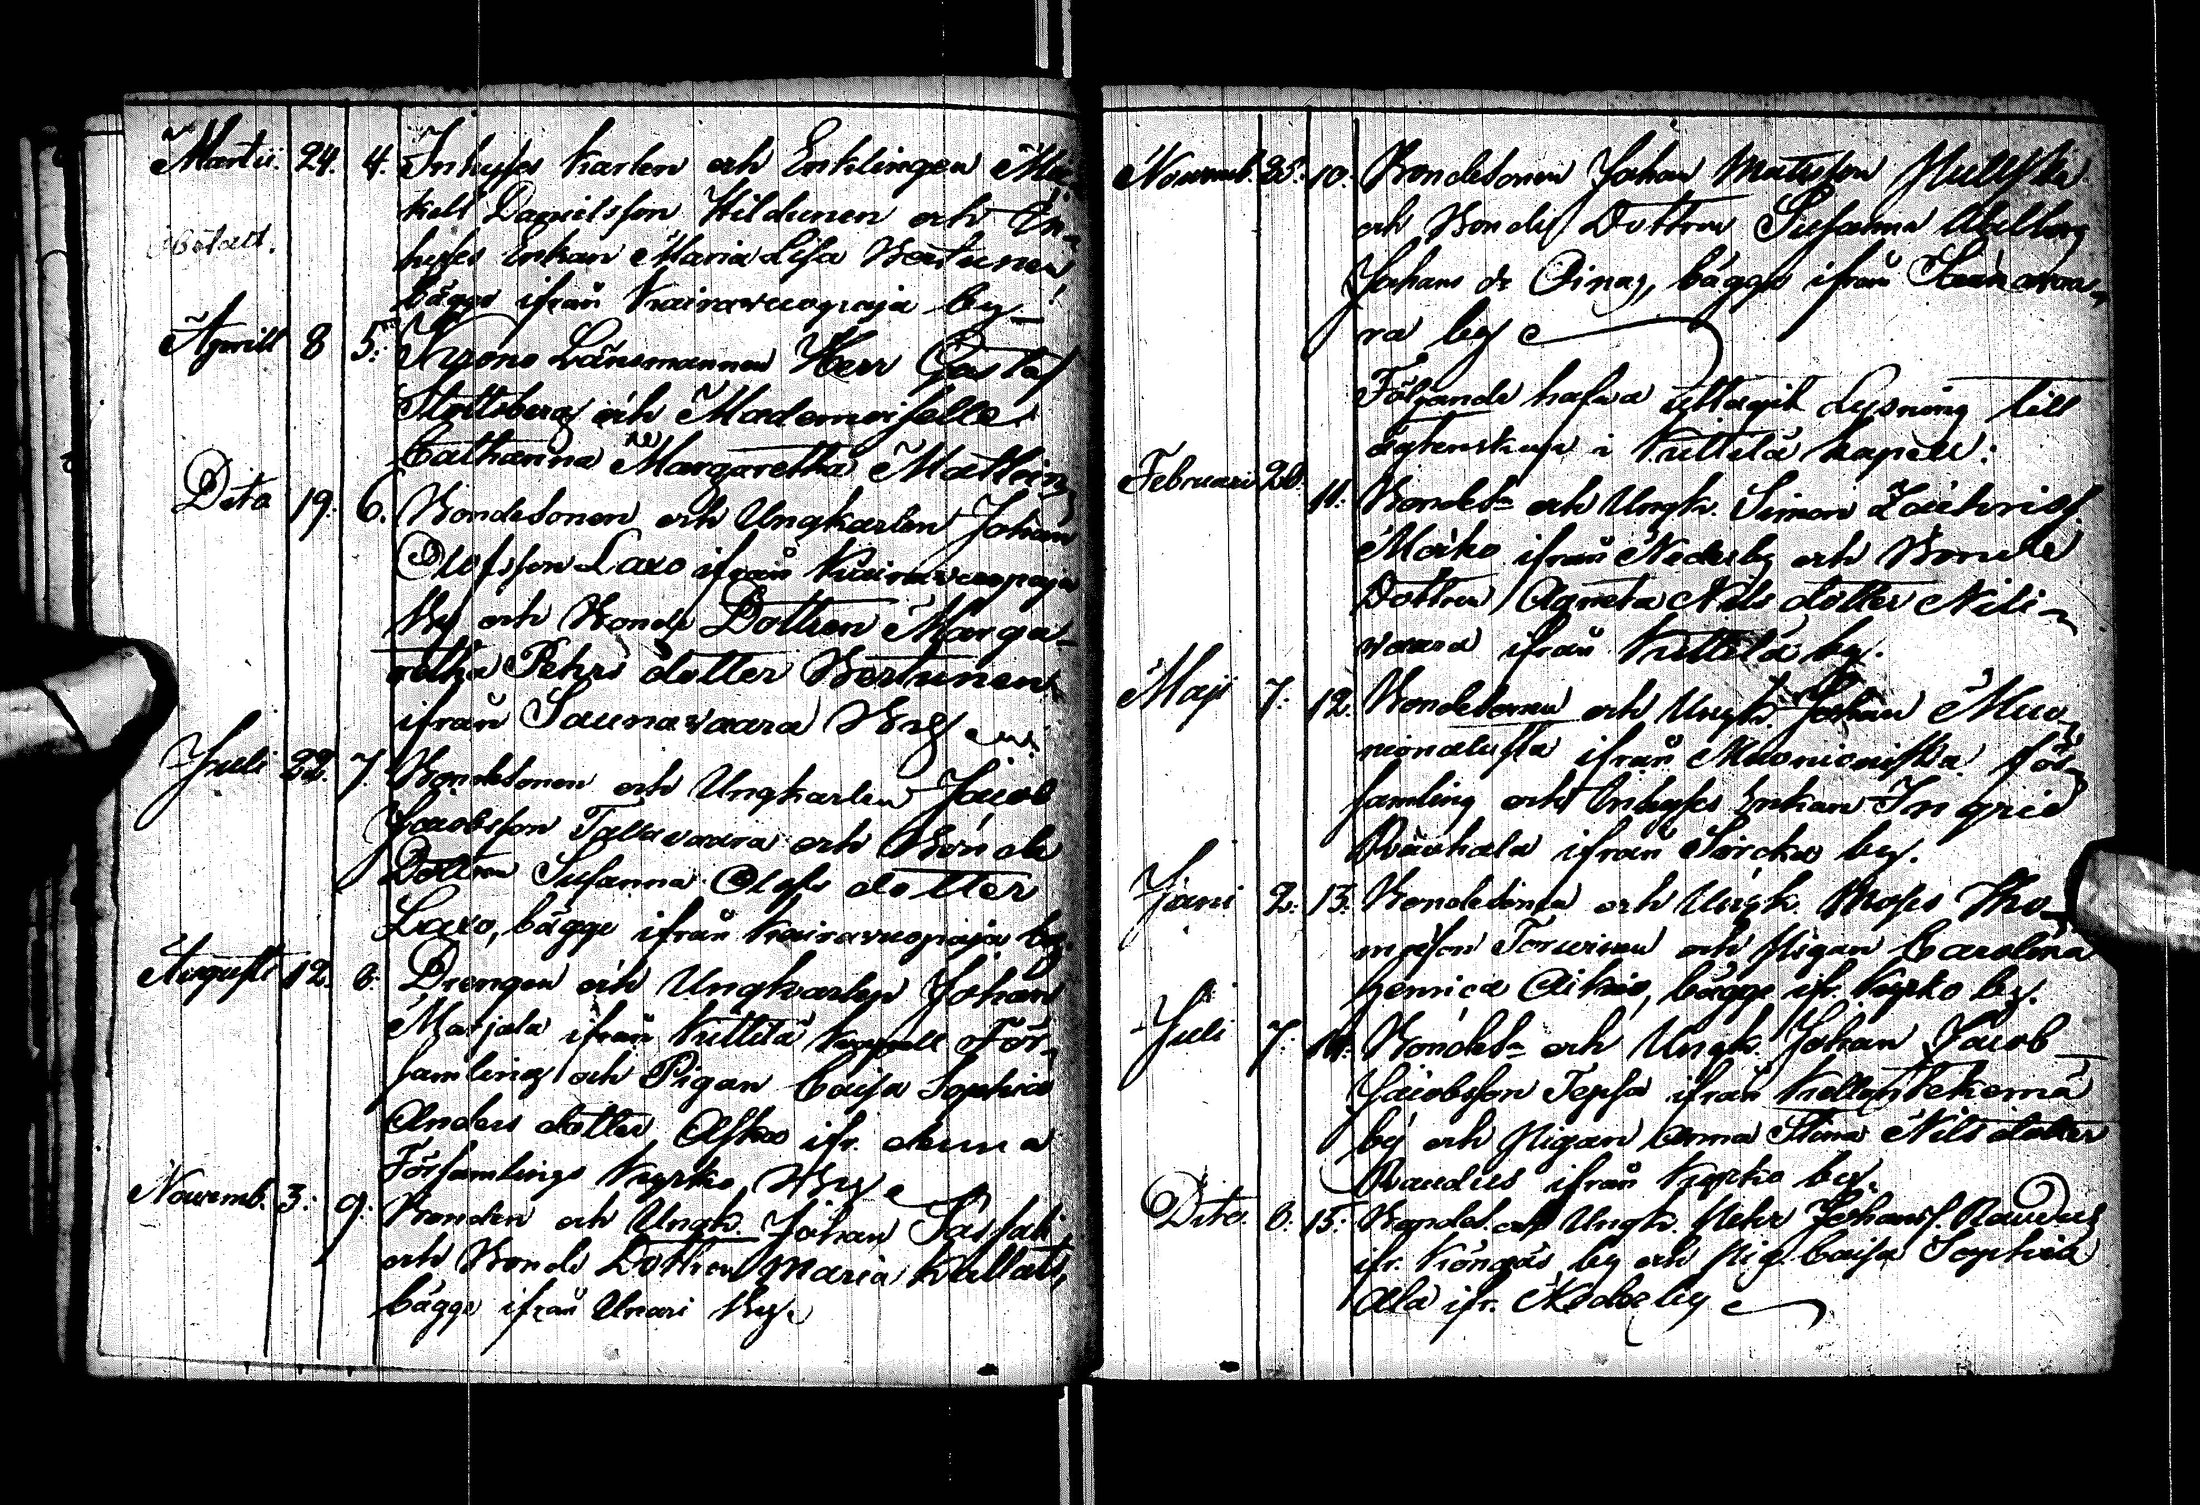 Martii. 24. 4. Inhyses Karlen och Enklingen Mic-
kell Danielsson Hildunen och In-
hyses Enkan Maria Lisa Bertunen
bägge ifrån Kairavuopaja by
Aprill 8 5. Krono Länsmannen Herr Gustaf
Stoltzberg och Mademoiselle
Catharina Margaretha Mathein
Dito 19. 6. Bondesonen och Ungkarlen Johan
Olofsson Laxo ifrån Kairavuopaja
By och Bonde Dottren Marga-
retha Pehrs dotter Bertunen
ifrån Saunavaara By
Juli 22. 7. Bondesonen och Ungkarlen Jacob
Jacobsson Tallavaara och Bonde
Dottren Susanna Olofs dotter
Laxo, bägge ifrån Kairavuopaja by.
Augusti 12. 8. Drengen och Ungkarlen Johan
Marjala ifrån Kittilä Kapell För-
samling och Pigan Caisa Sophia
Anders dotter Asko ifr. denna
Församlings Kyrko By
Novemb. 3. 9. Bonden och Ungk. Johan Sassali
och Bonde Dottren Maria Kallatz,
bägge ifrån Unari By.
Novemb. 25. 10. Bondesonen Johan Matsson Pulska
och Bonde Dottren Susanna Abellina
Johans dr Pinaz, bägge ifrån Saunavaa-
ra by
Följande hafva uttagit Lysning till
ägtenskap i Kittilä Kapell:
Februari 28. 11. Bondes. och Ungk. Simon Zachrisf.
Maiko ifrån Nederby och Bonde
Dottren Agneta Nils dotter Nili-
vaara ifrån Kittilä by.
Maji 7. 12. Bondesonen och Ungk. Johan Muo-
nionalusta ifrån Muonioniska för-
samling och Inhyses Enkan Ingrid
Rauhala ifrån Sircka by.
Juni 2. 13. Bondesonen och Ungk. Moses Tho-
masson Torvinen och Pigan Carolina
Henrica Aikio, bägge ifr. Kyrko by.
Juli 7. 14. Bondes. och Ungk. Johan Jacob
Jacobsson Tepsa ifrån
by och Pigan Anna Stina Nils dotter
Raudus ifrån Kyrko by.
Dito. 8. 15. Bondes. och Ungk. Pehr Johansf. Raudus
ifr. Köngäs by och Pig. Caisa Sophia
Ala ifr. Neder by